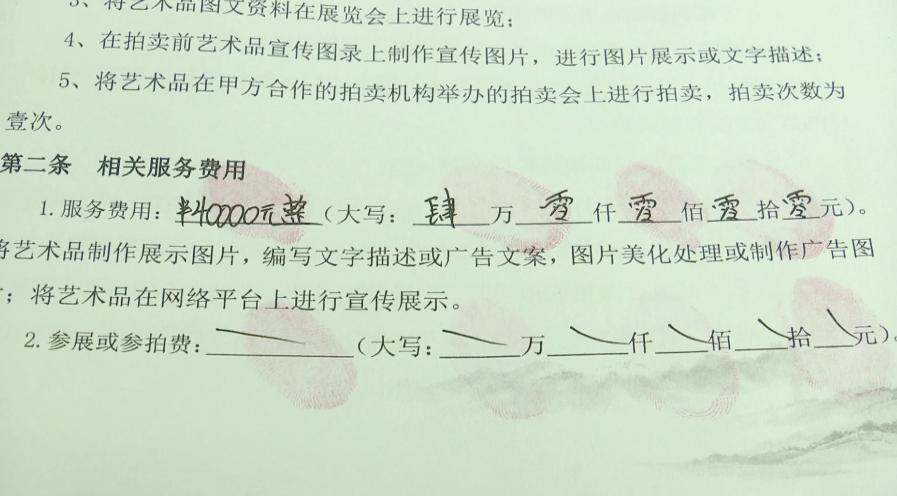 3、将艺术品图文资料在展览会上进行展览；
4、在拍卖前艺术品宣传图录上制作宣传图片，进行图片展示或文字描述；
5、将艺术品在甲方合作的拍卖机构举办的拍卖会上进行拍卖，拍卖次数为
壹次。
第二条 相关服务费用
1.服务费用：¥40000元整（大写：肆万零仟零佰零拾零元）。
将艺术品制作展示图片，编写文字描述或广告文案，图片美化处理或制作广告图
；将艺术品在网络平台上进行宣传展示。
2.参展或参拍费：（大写：万仟佰拾元）。